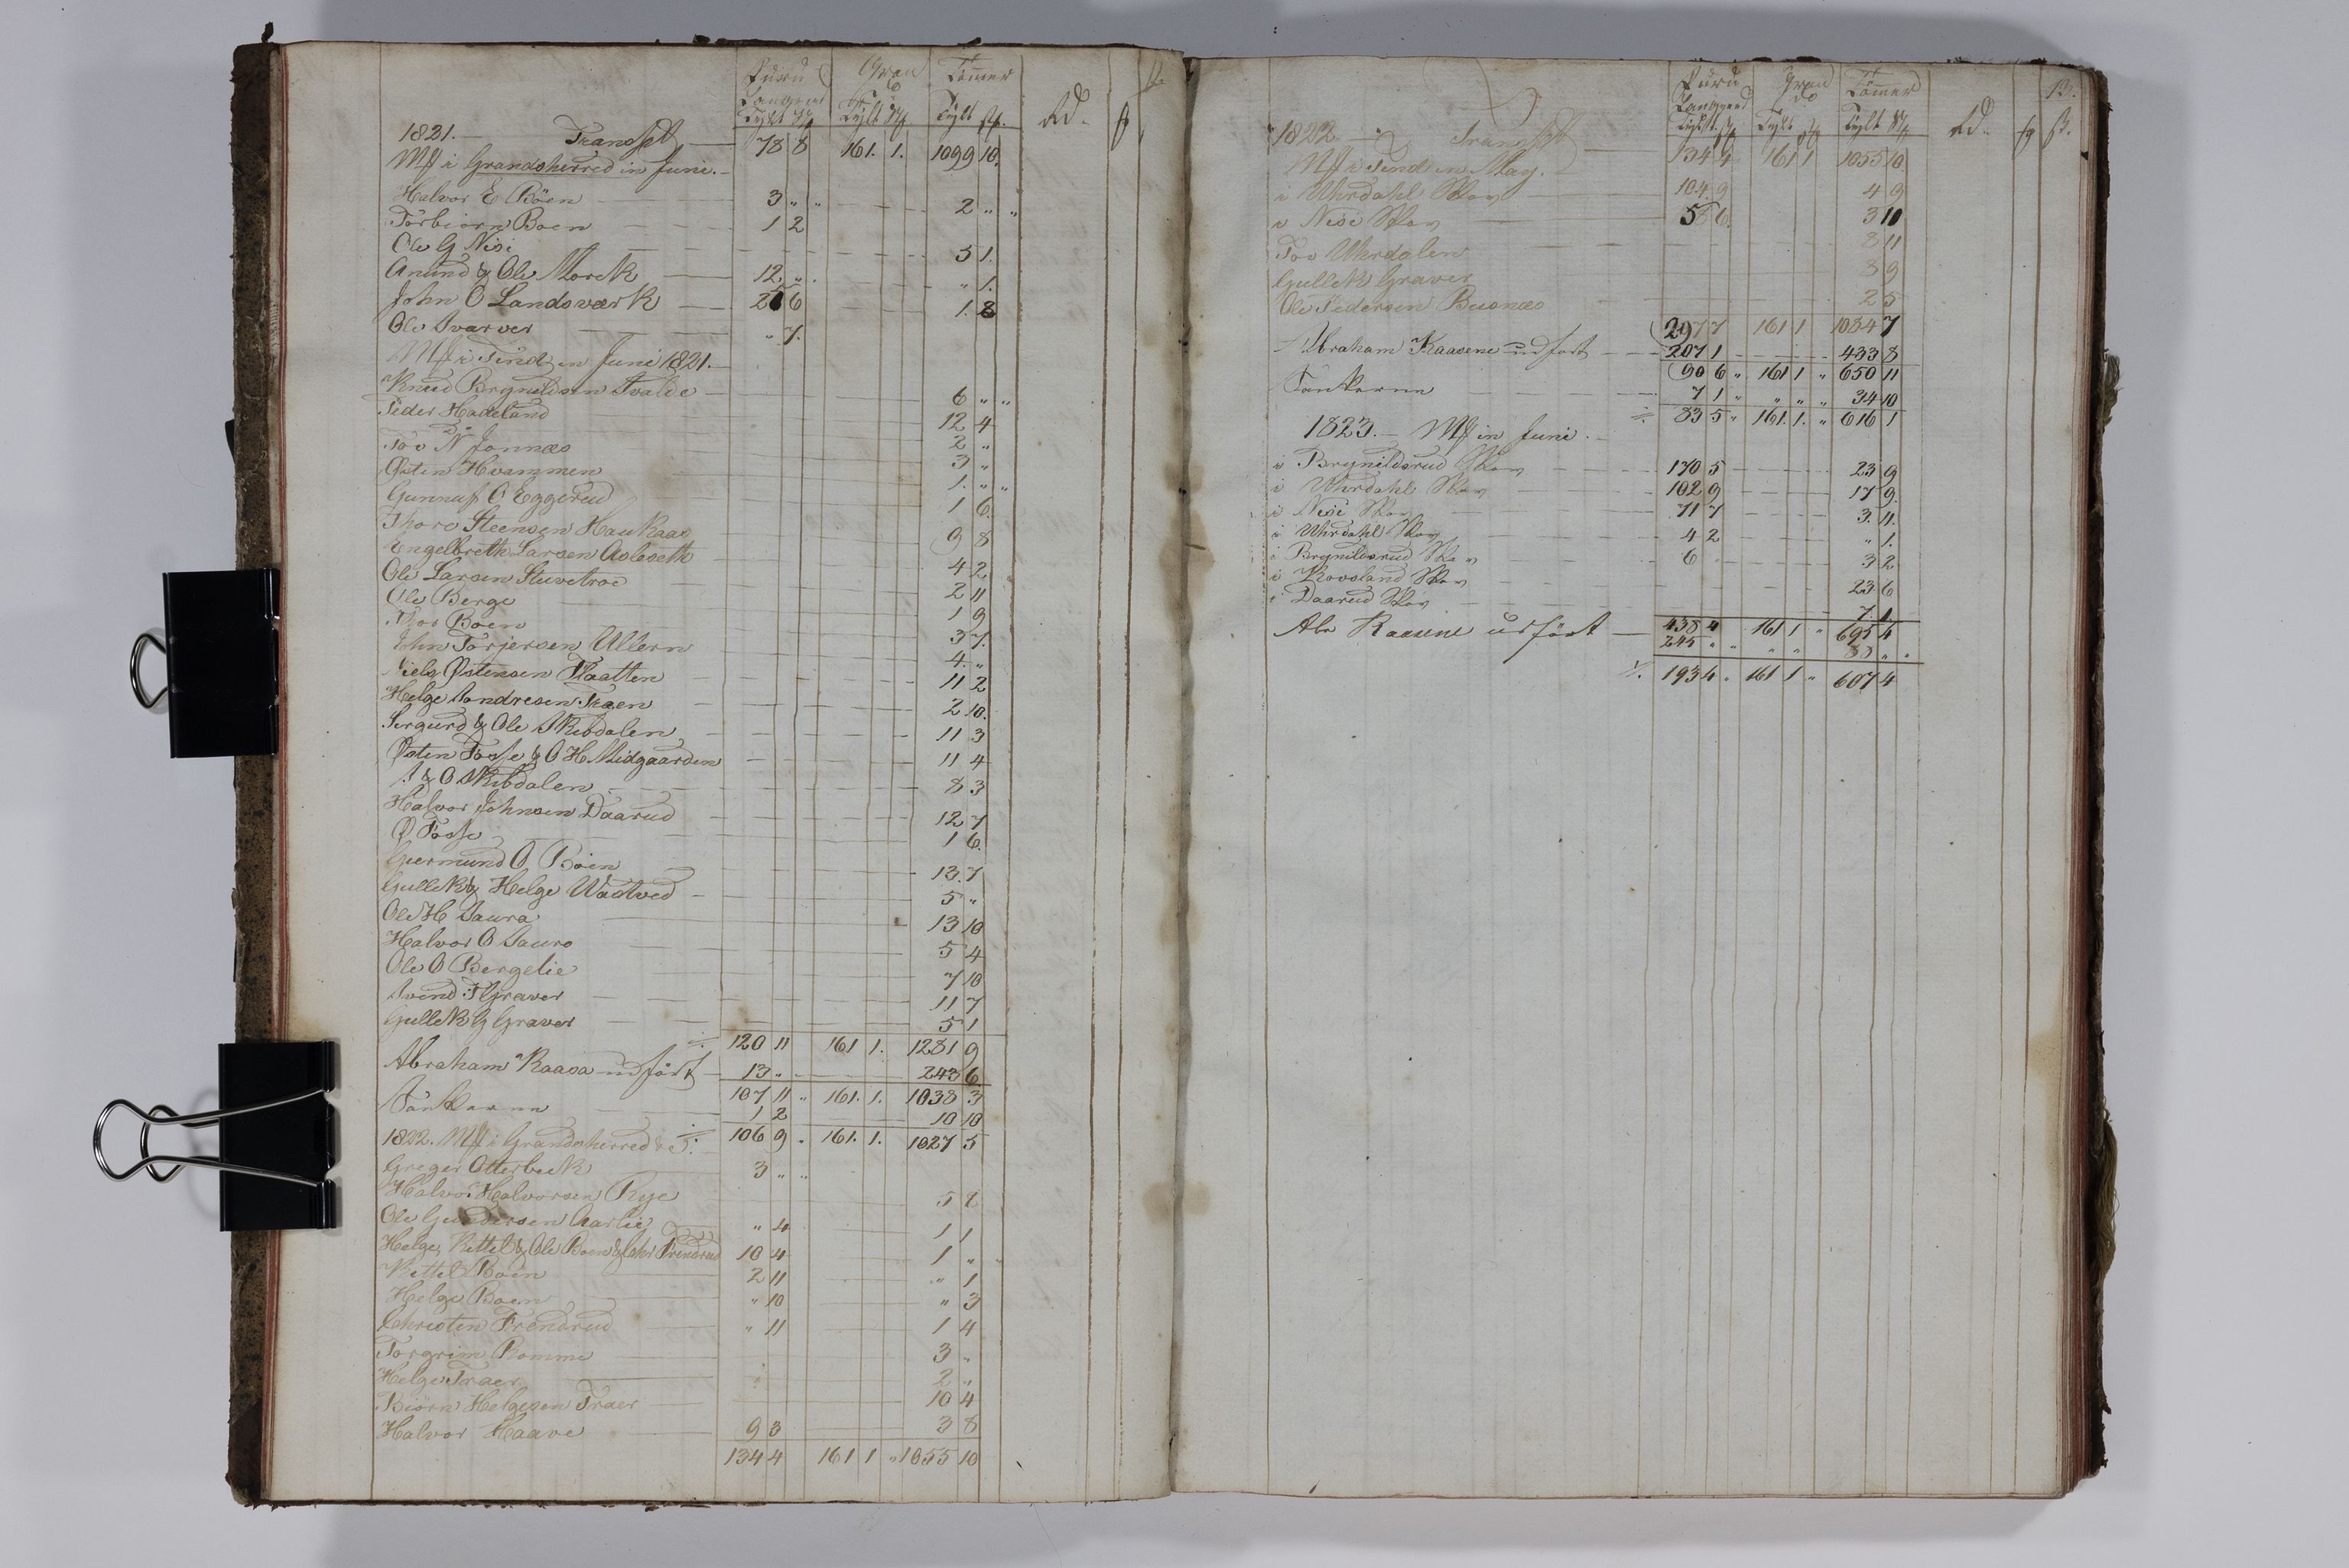 12.
Furu Gran Tömmer
Langved do
Tylt St. Tylt St. Tylt St. Rd. ſs
1821. — Transpt — 78 8 161. 1. 1099 10.
i Grandsherred in Juni. —
Halvor E Böen 3 „ „ 2 „ „
Torbiörn Boen 1 2
Ole G Nisi 3 1.
Anund & Ole Morck 12 „ „ 1.
John O Landsværk 26 6 1. 8
Ole Svarver „ 7.
i Tind in Juni 1821. —
Knud Brynildsen Svalde 6 „ „
Peder Hadeland 12 4
Tov N Jonnæs 2 „
Østen Hvammen 3 „
Gunnuf O Eggerud 1. „ „
Thore Steensen Haukaas 1 6
Engelbreth Larsen Asleseth 9 8
Ole Larsen Stuvetroe 4 2
Ole Berge 2 11
Thor Boen 1 9
John Torjersen Ullern 3 7.
Niels Østensen Flaatten 4. „
Helge Sondresen Traen 11 2
Sergurd & Ole Skibdalen 2 10.
Østen Fosse & O H Midgaarden 11 3
S & O Skibdalen 11 4
Halvor Johnsen Daarud 8 3
Ø Fosse 12 7
Giermund O. Böen 1 6.
Gullek & Helge Waatved 13. 7
Ole H Saura 5 „
Halvor O Sauro 13 10
Ole O Bergelie 5 4
Svend T Graver 7 10
Gullek G Graver 11 7
5 1
120 11 161 1. 1281 9
Abraham Kaasa udfört 13 „ 243 6
107 11 „ 161. 1. 1038 3
Sankerne 1 2 10 10
106 9 „ 161. 1. 1027 5
1822. i Grandsherred
Greger Otterbeck 3 „ „
Halvor Halvorsen Rye 5 2
Ole Gundersen Aarlie „ 4 1 1
Helge, Kittel & Ole Boen & Chr Frendrud 10 4 1 „
Kittel Boen 2 11 „ 1
Helge Boen „ 10 „ 3
Christen Frendrud „ 11 1 4
Torgrim Romme 3 „
Helge Traer 2 „
Biörn Helgesen Traer 10 4
Halvor Haave 9 3 3 8
134 4 161 1 „ 1055 10
13.
Furu Gran Tömmer
Langved do
Tylt St. Tylt St. Tylt St. Rd.
1822 — Transpt 134 4 161 1 1055 10
i Tind in May.
i Uhrdahl Skov 104 9 4 9
i Nisi Skov 58 6. 3 10
Tov Uhrdalen 8 11
Gullek Graver 8 9
Ole Pedersen Busnæs 2 5
297 7 161 1 1084 7
Abraham Kaasene udfort 207 1 433 8
90 6 „ 161 1 „ 650 11
Sankerne 7 1 „ „ „ „ 34 10
83 5 „ 161. 1. „ 616 1
1823. — in Juni. —
i Brynildsrud Skov 170 5 23 9
i Uhrdahl Skov 102 9 17 9.
i Nisi Skov 71 7 3. 11.
i Uhrdahl Skov 4 2 „ 1.
i Brynildsrud Skov 6 3 2
i Rovoland Skov 23 6
i Daarud Skov 7. 1
438 4 161 1 „ 695 4
Abr Kaasene udfört — 245 „ „ „ „ 88 „ „
193 4 „ 161 1 „ 607 4